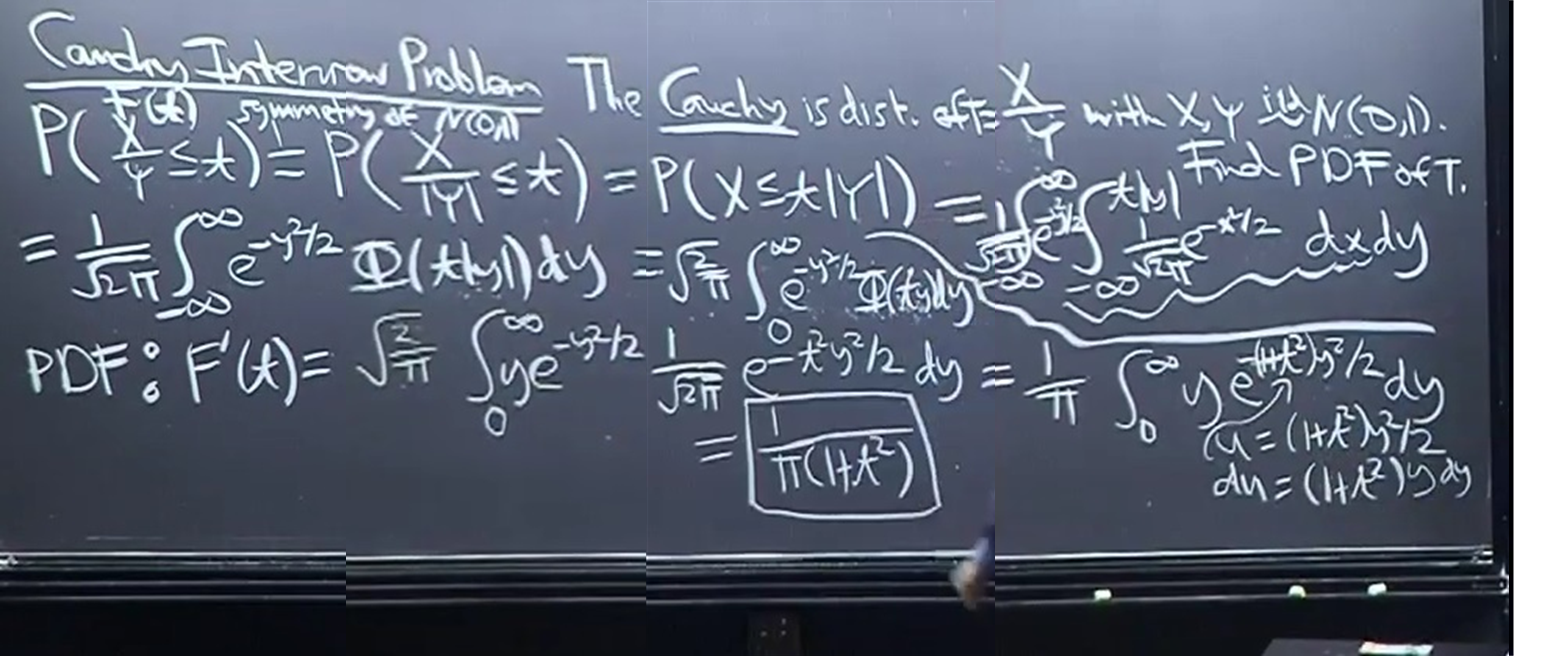 Cauchy Interview Problem The Cauchy is dist. of T = X/Y with X, Y iid N(0,1).
Find PDF of T.
F(t) symmetry of N(0,1)
P(X/Y ≤ t) = P(X/|Y| ≤ t) = P(X ≤ t|Y|) = 1/√2π ∫_{-∞}^{∞} e^{-y²/2} ∫_{-∞}^{t|y|} 1/√2π e^{-x²/2} dx dy
= 1/√2π ∫_{-∞}^{∞} e^{-y²/2} Φ(t|y|) dy = √(2/π) ∫_0^∞ e^{-y²/2} Φ(ty) dy
PDF: F'(t) = √(2/π) ∫_0^∞ y e^{-y²/2} 1/√2π e^{-t²y²/2} dy = 1/π ∫_0^∞ y e^{-(1+t²)y²/2} dy
u = (1+t²)y²/2
du = (1+t²)y dy
= 1/π(1+t²)